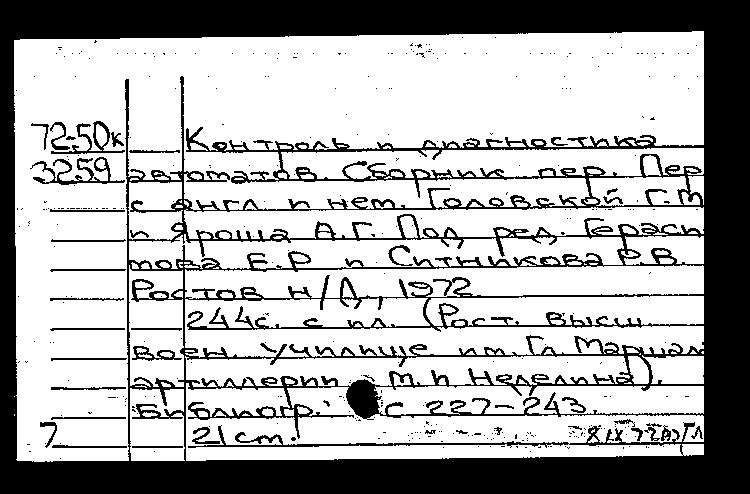 72-50к Контроль и диагностика
3259 автоматов. Сборник пер. Пер
с англ. и нем. Головской Г.М
и Яроша А.Г. Под ред. Гераси-
това Е.Р и Ситникова Р.В.
Ростов н/Д., 1972
244с. с ил. (Рост. высш.
воен. училище им. Гл. Маршал
артиллерии М.И Неделина).
Библиогр.: с. 227-243.
7 21 ст.